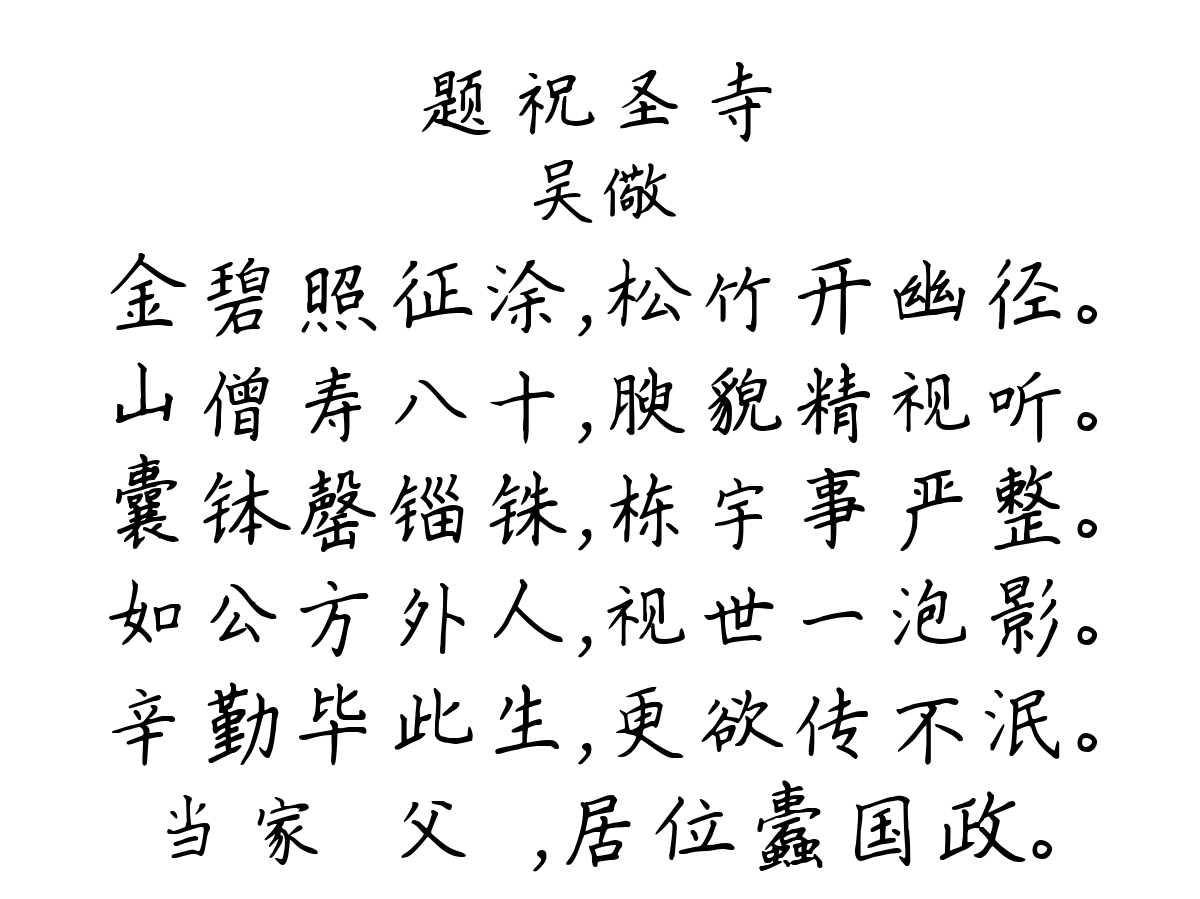 题祝圣寺
吴儆
金碧照征涂,松竹开幽径。
山僧寿八十,腴貌精视听。
囊钵罄锱铢,栋宇事严整。
如公方外人,视世一泡影。
辛勤毕此生,更欲传不泯。
当家 父 ,居位蠹国政。